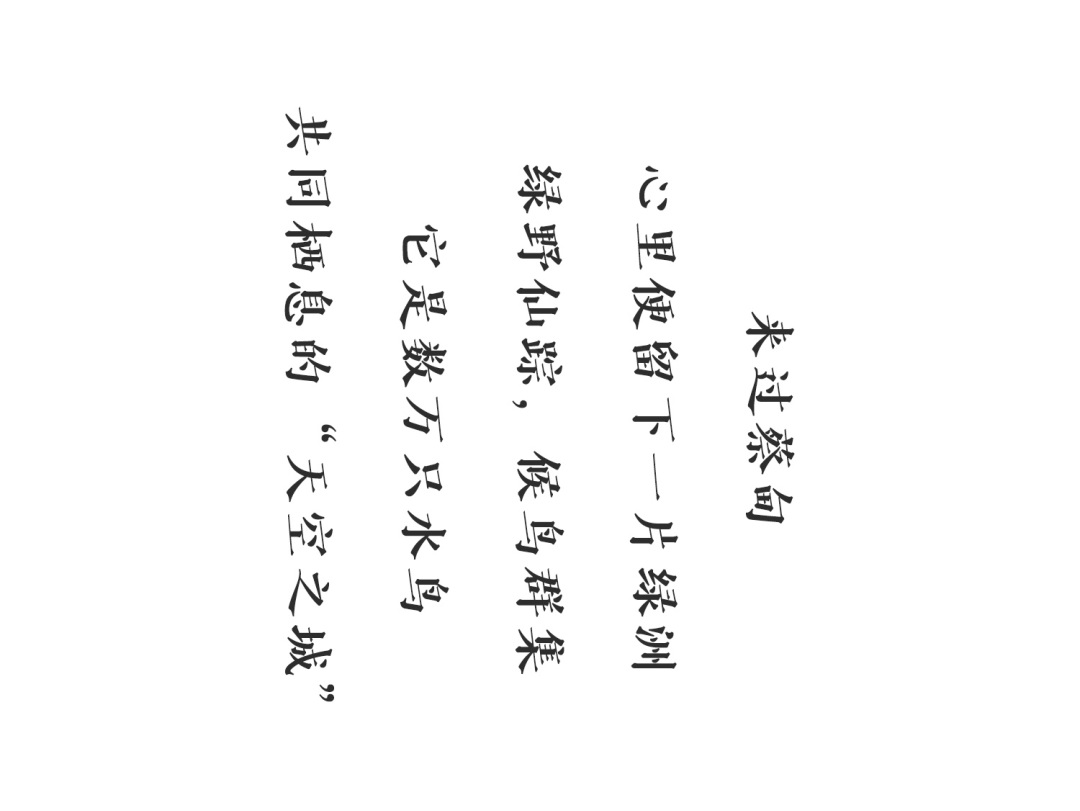 来过蔡甸
心里便留下一片绿洲
绿野仙踪，候鸟群集
它是数万只水鸟
共同栖息的“天空之城”